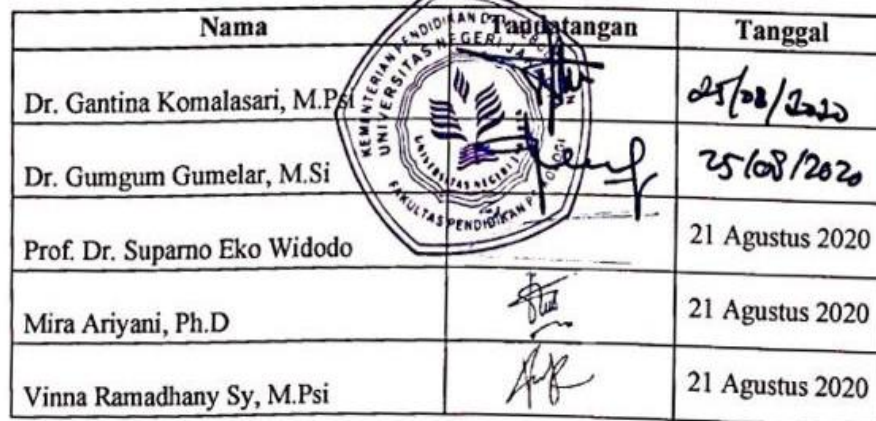 Nama Tandatangan Tanggal
Dr. Gantina Komalasari, M.Psi 25/08/2020
Dr. Gumgum Gumelar, M.Si 25/08/2020
Prof. Dr. Suparno Eko Widodo 21 Agustus 2020
Mira Ariyani, Ph.D 21 Agustus 2020
Vinna Ramadhany Sy, M.Psi 21 Agustus 2020
KEMENTERIAN PENDIDIKAN DAN
UNIVERSITAS NEGERI JA
UNIVERSITAS NEGERI
FAKULTAS PENDIDIKAN